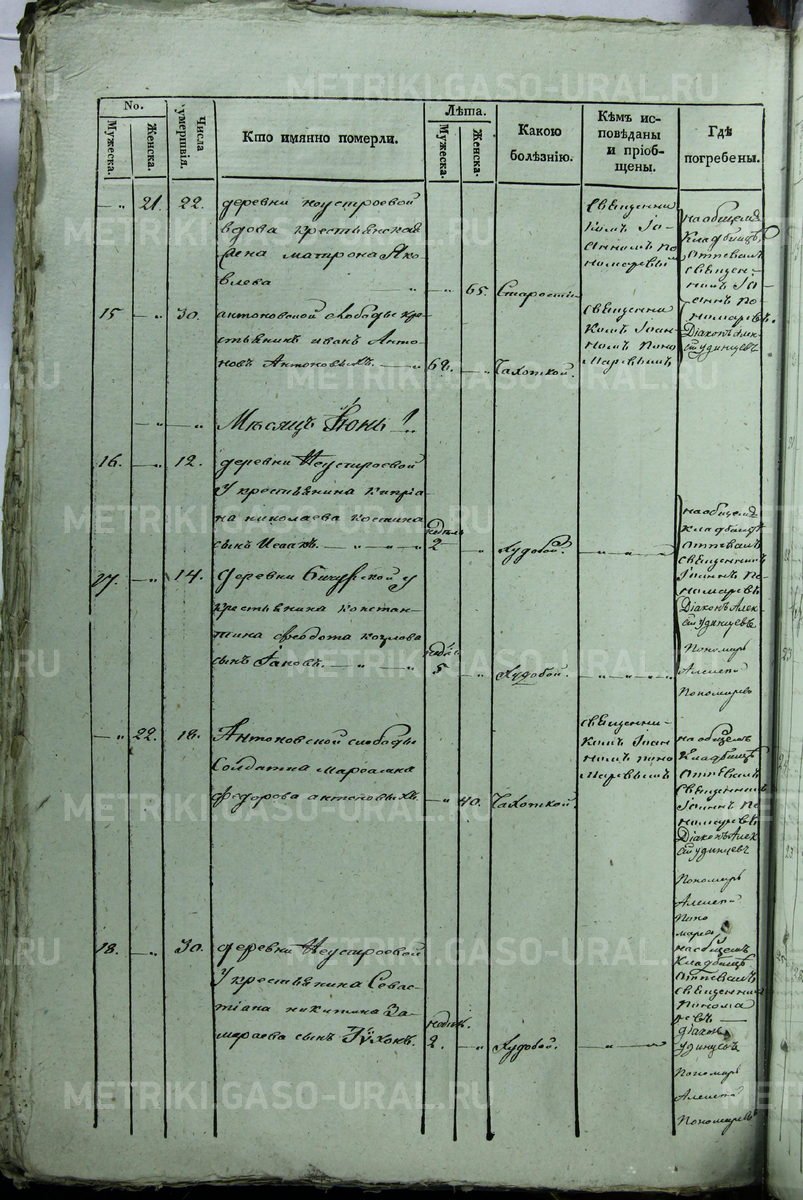 METRIKI.GASO-URAL.RU
No.
Мужеска.
Женска.
Числа умершія.
Кто имянно померли.
Лѣта.
Мужеска.
Женска.
Какою
болѣзнію.
Кѣмъ ис-
повѣданы
и пріоб-
щены.
Гдѣ
погребены.
21. 22. деревни неустроевой
вдова крестьянская
жена матрона Яко-
влева 65. Старостію
Священни
комъ Іо-
анномъ по
номаревымъ
на общемъ
Кладбищѣ
Отпевалъ
священ-
никъ Іо-
аннъ По-
номаревъ.
Діаконъ Алек-
сій удинцевъ
15 30. антоновской слободы кре-
стьянинъ иванъ Анто-
новъ Антоновыхъ. 68. Чахоткой.
Священни
комъ Іоан-
номъ Поно
маревымъ
Мѣсяцъ Іюнь
16. 12. деревни Неустроевой
У крестьянина Кипріа
на николаева костина
сынъ Исаакъ. недѣль 2 Худобой.
на общемъ
кладбищѣ
Отпевалъ
священникъ
Іоаннъ По-
номаревъ
Діаконъ Алек
сій Удинцевъ
Пономарь
Алексей
Пономаревъ
17. 14. Деревни у
крестьянина констан-
тина козлова
сынъ Іаковъ. 5 Худобой.
22. 18. Антоновской слободы
Солдатка
Федорова антоновыхъ. 40. Чахоткой.
священни-
комъ Іоан
номъ поно
маревымъ
на общемъ
Кладбищѣ
Отпевалъ
Священникъ
Іоаннъ По
номаревъ
Діаконъ Алек
сій удинцевъ
Пономарь
Алексей
Поно
марев
18. 30. деревни Неустроевой
У крестьянина Севас-
тіана никитина За-
мараева сынъ недѣл. 2. Худобой.
на общемъ
Кладбищѣ
Отпевалъ
священникъ
Понома
ревъ
Удинцевъ
Пономарь
Алексей
Пономаревъ